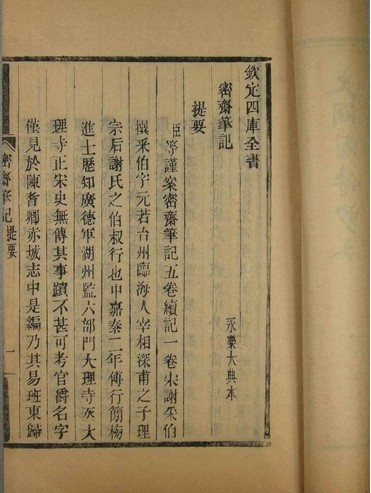 欽定四庫全書
密齋筆記 永樂大典本
提要
臣等謹案密齋筆記五卷續記一卷宋謝采伯
撰采伯字元若台州臨海人宰相深甫之子理
宗后謝氏之伯叔行也中嘉泰二年傅行簡榜
進士歷知廣德軍湖州監六部門大理寺丞大
理寺正宋史無傳其事蹟不甚可考官爵名字
僅見於陳耆卿赤城志中是編乃其易班東歸
密齋筆記提要 一